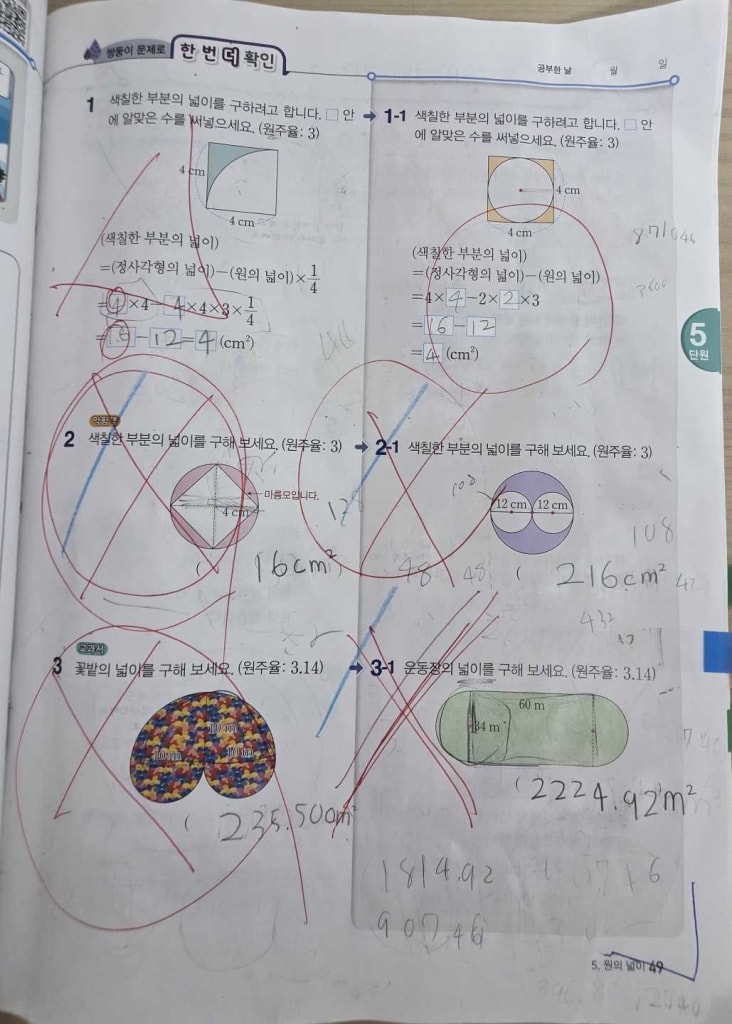 쌍둥이 문제로 한 번 더 확인
공부한 날 월 일
1 색칠한 부분의 넓이를 구하려고 합니다. □ 안
에 알맞은 수를 써넣으세요. (원주율: 3)
4 cm
4 cm
(색칠한 부분의 넓이)
=(정사각형의 넓이)-(원의 넓이)×1/4
=4×4-4×4×3×1/4
=16-12=4(cm²)
1-1 색칠한 부분의 넓이를 구하려고 합니다. □ 안
에 알맞은 수를 써넣으세요. (원주율: 3)
4 cm
4 cm
(색칠한 부분의 넓이)
=(정사각형의 넓이)-(원의 넓이)
=4×4-2×2×3
=16-12
=4(cm²)
5
단원
2 색칠한 부분의 넓이를 구해 보세요. (원주율: 3)
마름모입니다.
4 cm
( 16cm²
2-1 색칠한 부분의 넓이를 구해 보세요. (원주율: 3)
108
12 cm 12 cm
108
48 48
( 216cm²
432
교과서
3 꽃밭의 넓이를 구해 보세요. (원주율: 3.14)
10 m
10 m 10 m
( 235.500m²
3-1 운동장의 넓이를 구해 보세요. (원주율: 3.14)
60 m
34 m
(2224.92m²
1814.92
907.46
5. 원의 넓이 49